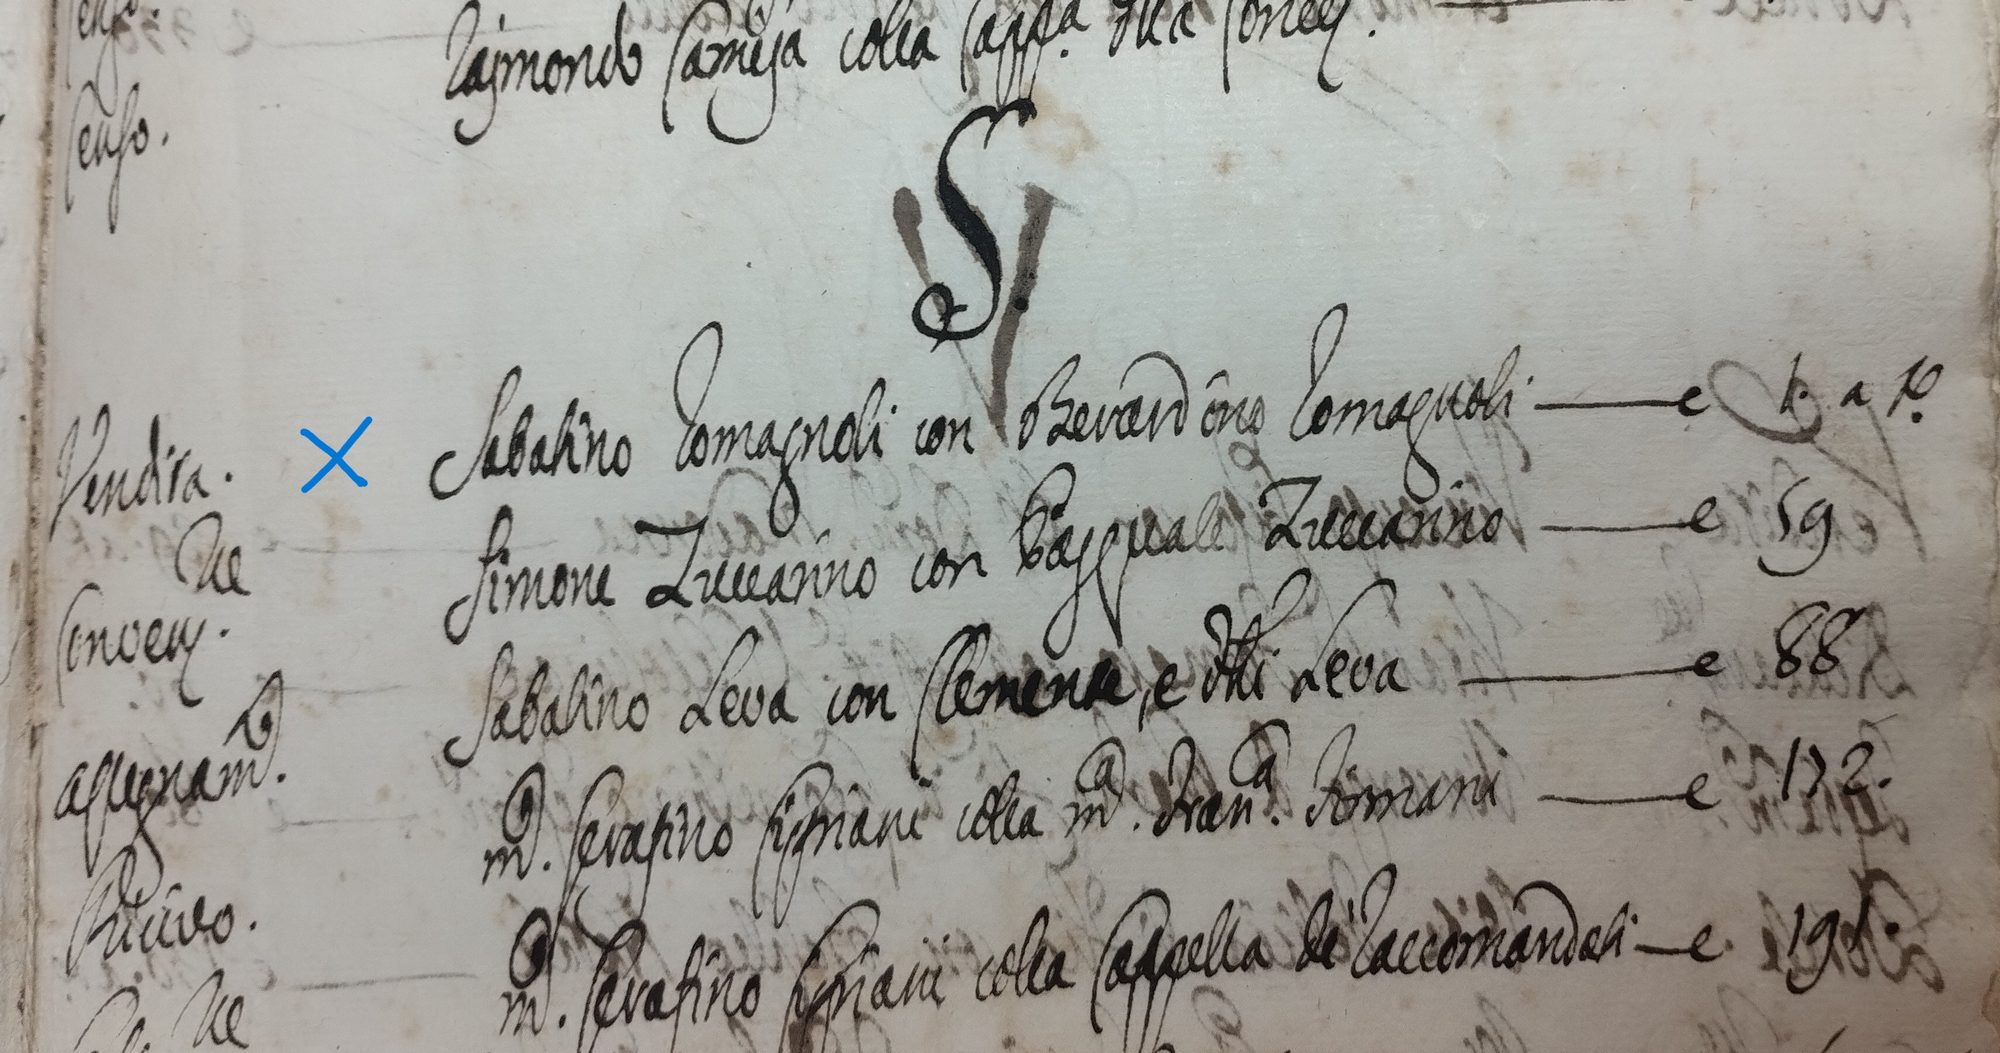 Censo.
Raimondo
colla Capp.a della
Censo.
S.
Vendita. Sabatino Romagnoli con Berardino Romagnoli — c 1. a
Simone Zuccarino con Pasquale Zuccarino — c 59
Conven.ne Sabatino Leva con Clemente, e Leva — c 88
assegnam.to m.o Serafino Cipriani colla m.a Fran.a Firmani — c 172.
m.o Serafino Cipriani colla Cappella de Raccomandati — c 191.